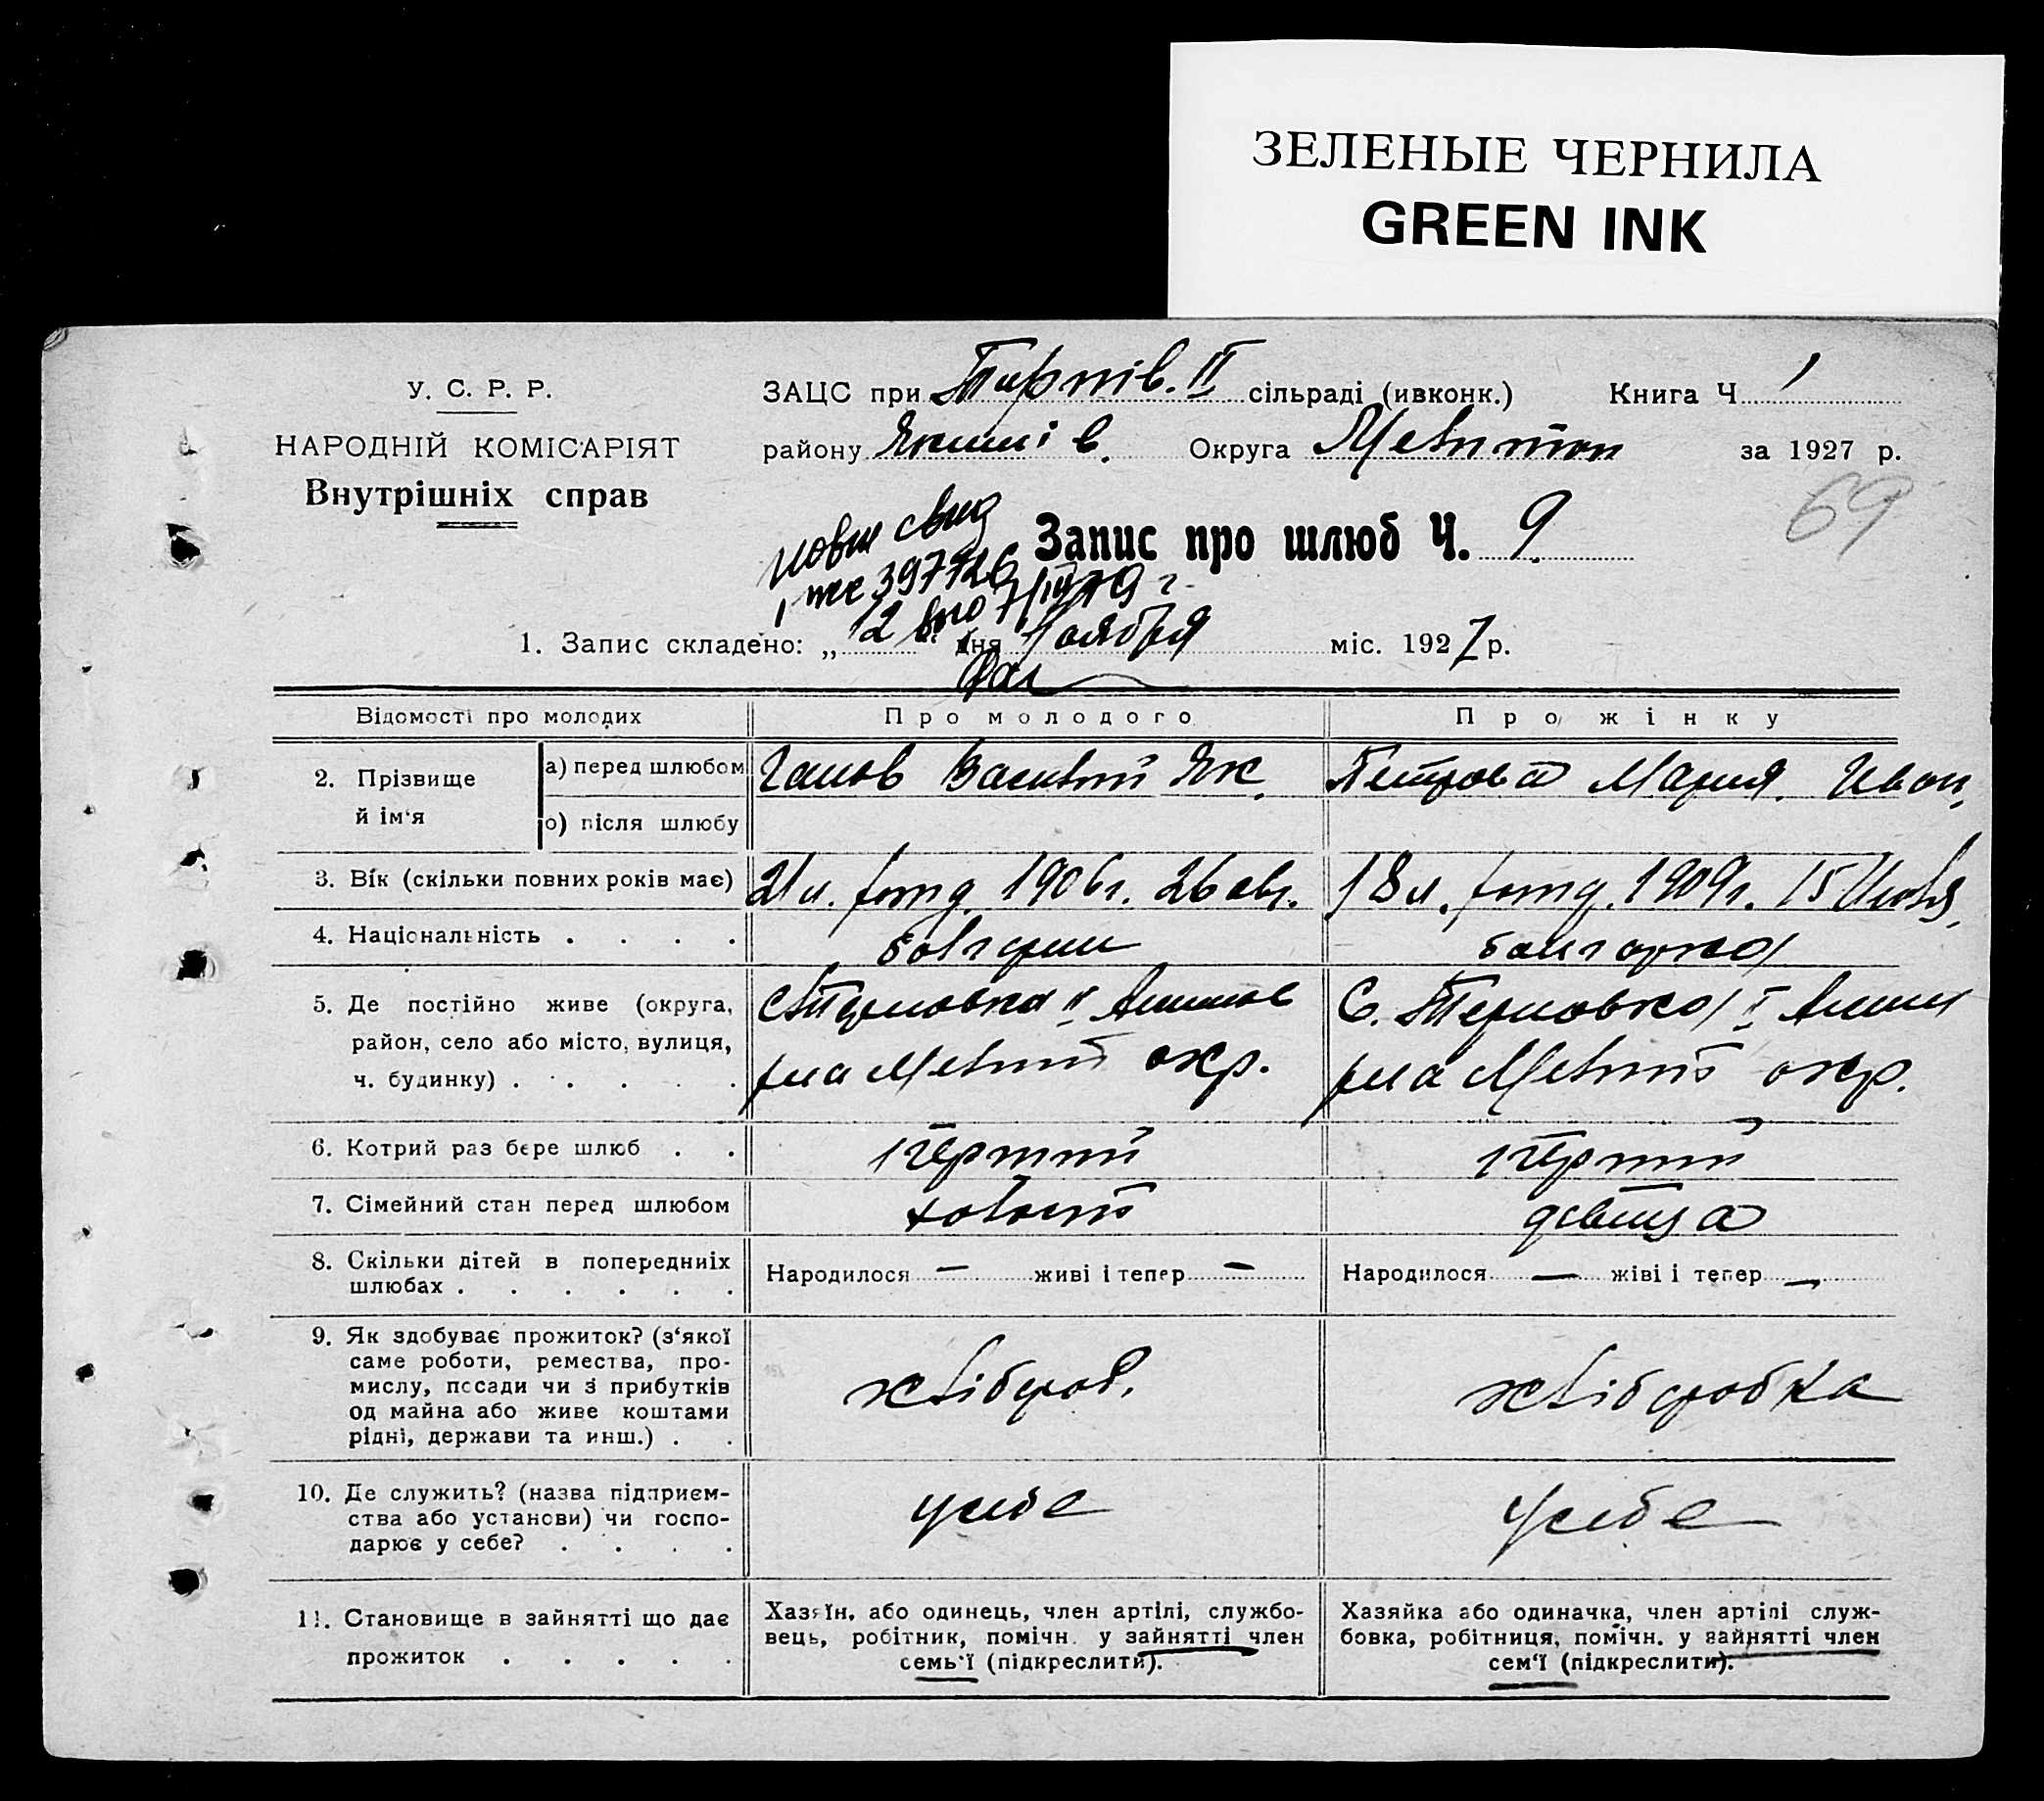 ЗЕЛЕНЫЕ ЧЕРНИЛА
GREEN INK
У. С. Р. Р.
НАРОДНІЙ КОМІСАРІЯТ
Внутрішніх справ
ЗАЦС при Тирнів. II сільраді (ивконк.) Книга Ч 1
району Якимів. Округа Мелитоп за 1927 р.
69
Запис про шлюб Ч. 9
397726
1. Запис складено: „ 12 " дня Ноября міс. 1927 р.
Відомості про молодих Про молодого Про жінку
2. Прізвище й ім'я а) перед шлюбом Ганов Василий Як. Петрова Мария. Иван.
о) після шлюбу
3. Вік (скільки повних років має) 21 л. 1906 г. 26 авг. 18 л. 1909 г. 15 Июля
4. Національність . . . . болгарин болгарка
5. Де постійно живе (округа, район, село або місто, вулиця, ч. будинку) . . . . .
с. Терновка II Акимов
р-на Мелит окр.
С. Терновка I Аким
р-на Мелит окр.
6. Котрий раз бере шлюб . . первий первий
7. Сімейний стан перед шлюбом холост девица
8. Скільки дітей в попередниіх шлюбах . . . . . . Народилося — живі і тепер — Народилося — жіві і тепер —
9. Як здобуває прожиток? (з'якої саме роботи, ремества, промислу, посади чи з прибутків од майна або живе коштами рідні, держави та инш.) . .
хлібороб. хліборобка
10. Де служить? (назва підприємства або установи) чи господарює у себе? . . . .
у себе У себе
11. Становище в зайнятті що дає прожиток . . . . .
Хазяїн, або одинець, член артілі, службовець, робітник, помічн. у зайнятті член семь'ї (підкреслити).
Хазяйка або одиначка, член артілі службовка, робітниця, помічн. у зайнятті член сем'ї (підкреслити).